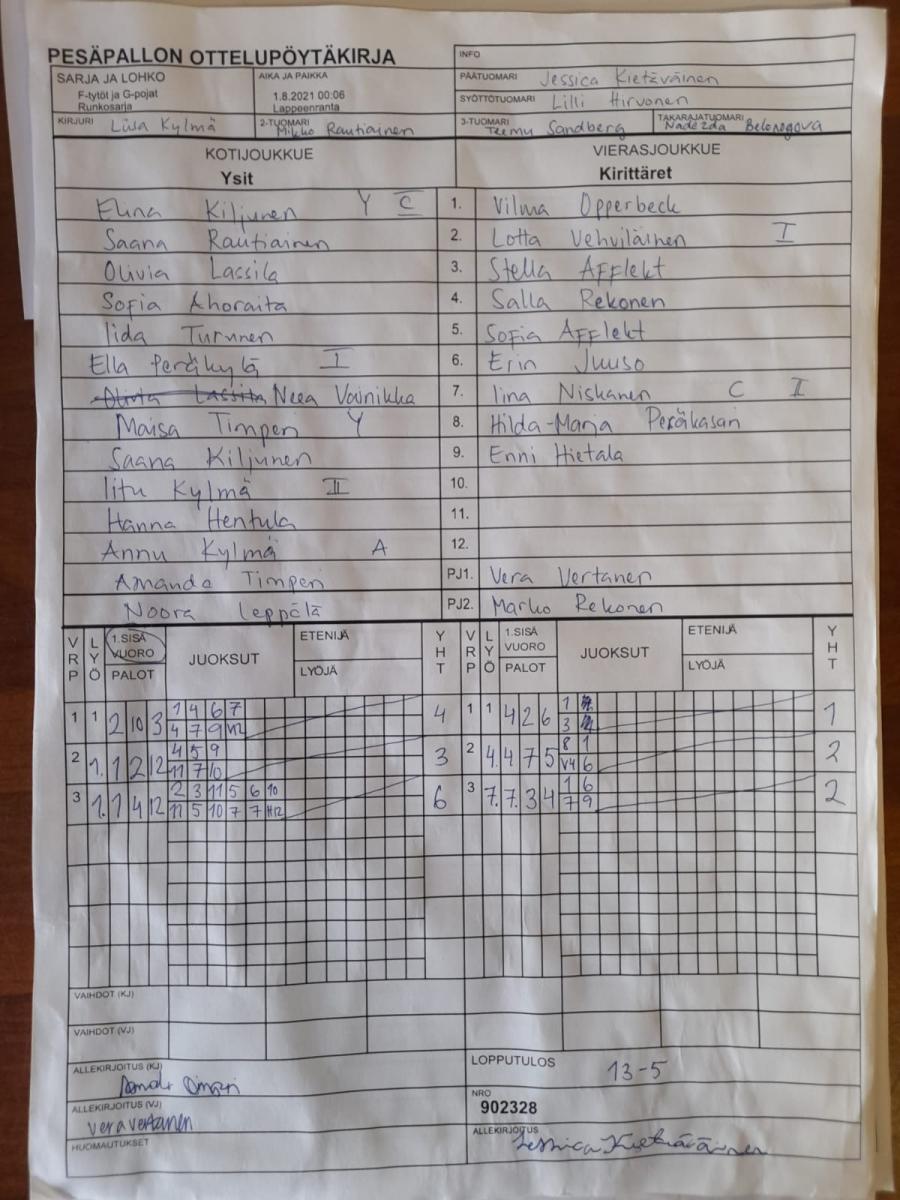 PESÄPALLON OTTELUPÖYTÄKIRJA
INFO
SARJA JA LOHKO
F-tytöt ja G-pojat
Runkosarja
AIKA JA PAIKKA
1.8.2021 00:06
Lappeenranta
PÄÄTUOMARI Jessica Kietäväinen
SYÖTTÖTUOMARI Lilli Hirvonen
KIRJURI Liisa Kylmä
2-TUOMARI Mikko Rautiainen
3-TUOMARI Teemu Sandberg
TAKARAJATUOMARI Nadezda Belonogova
KOTIJOUKKUE VIERASJOUKKUE
Ysit Kirittäret
Elina Kiljunen Y C 1. Vilma Opperbeck
Saana Rautiainen 2. Lotta Vehviläinen I
Olivia Lassila 3. Stella Afflekt
Sofia Ahoraita 4. Salla Rekonen
Iida Turunen 5. Sofia Afflekt
Ella Peräkylä I 6. Erin Juuso
Olivia Lassila Neea Vainikka 7. Iina Niskanen C I
Maisa Timperi Y 8. Hilda-Marja Peräkasari
Saana Kiljunen 9. Enni Hietala
Iitu Kylmä II 10.
Hanna Hentula 11.
Annu Kylmä A 12.
Amanda Timperi PJ1. Vera Vertanen
Noora Leppälä PJ2. Marko Rekonen
VRP LYÖ 1.SISÄ VUORO PALOT JUOKSUT ETENIJÄ LYÖJÄ YHT VRP LYÖ 1.SISÄ VUORO PALOT JUOKSUT ETENIJÄ LYÖJÄ YHT
1 1 2 10 3 1 4 6 7 4 1 1 4 2 6 1 1
4 7 9 3
2 1. 1 2 12 4 5 9 3 2 4. 4 7 5 8 1 2
11 7 10 V4 6
3 1. 1 4 12 2 3 11 5 6 10 6 3 7. 7. 3 4 1 6 2
11 5 10 7 7 H12 7 9
VAIHDOT (KJ)
VAIHDOT (VJ)
ALLEKIRJOITUS (KJ)
LOPPUTULOS 13-5
ALLEKIRJOITUS (VJ)
vera vertanen
NRO
902328
HUOMAUTUKSET
ALLEKIRJOITUS
Jessica Kietäväinen